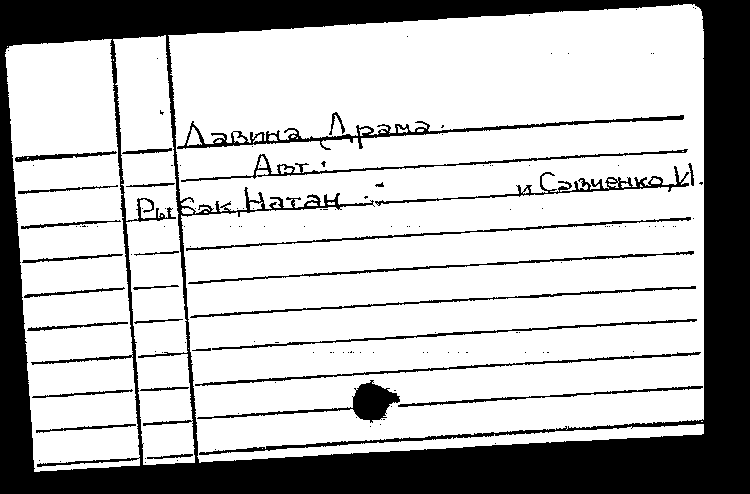 Лавина. Драма.
Авт.:
Рыбак, Натан и Савченко, И.